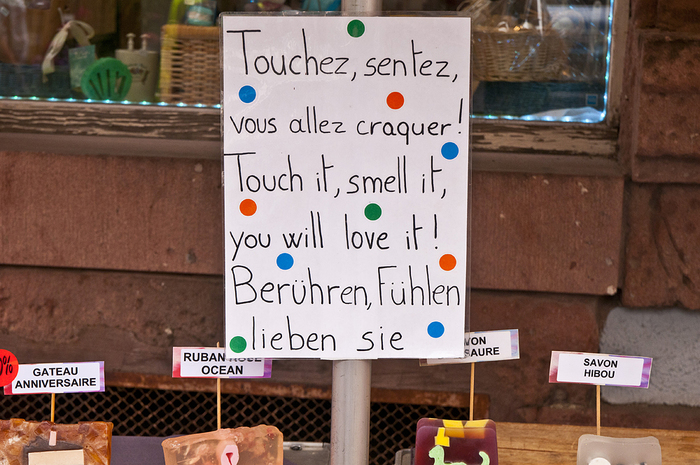 Touchez, sentez,
vous allez craquer!
Touch it, smell it,
you will love it!
Berühren, Fühlen
lieben sie
GATEAU
ANNIVERSAIRE
RUBAN
OCEAN
SAVON
HIBOU